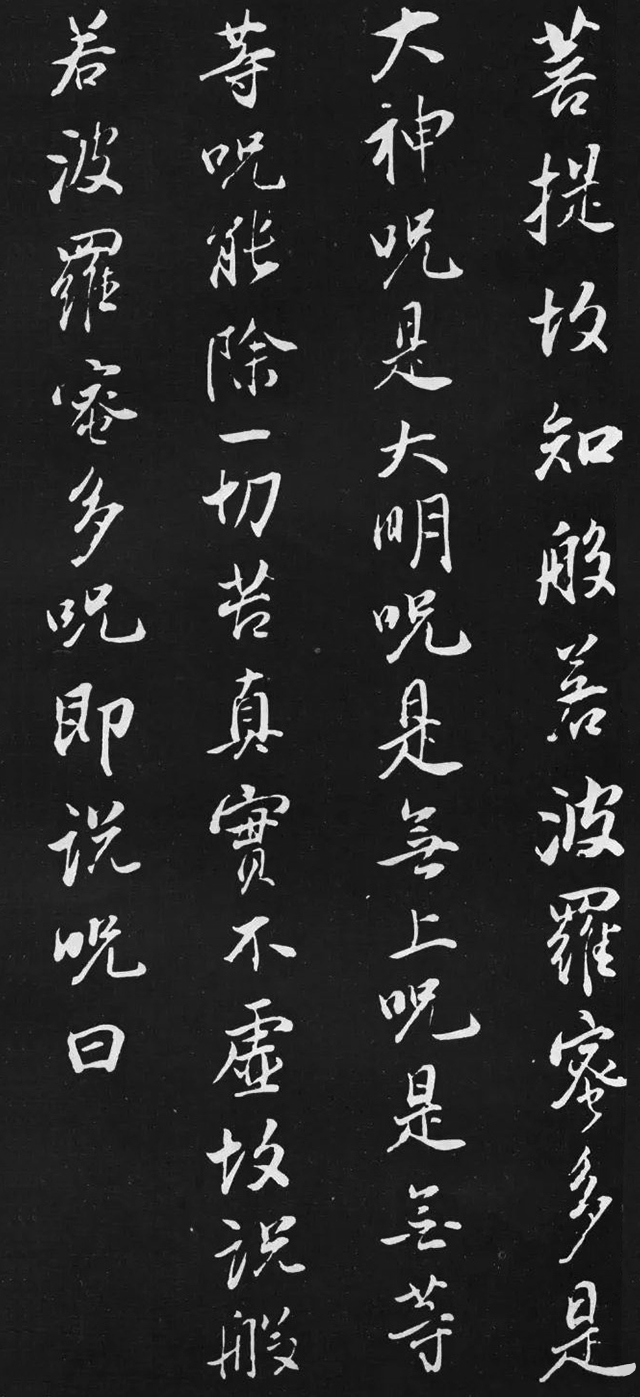 菩提故知般若波羅蜜多是
大神呪是大明呪是無上呪是無等
等呪能除一切苦真實不虛故說般
若波羅蜜多呪即說呪曰